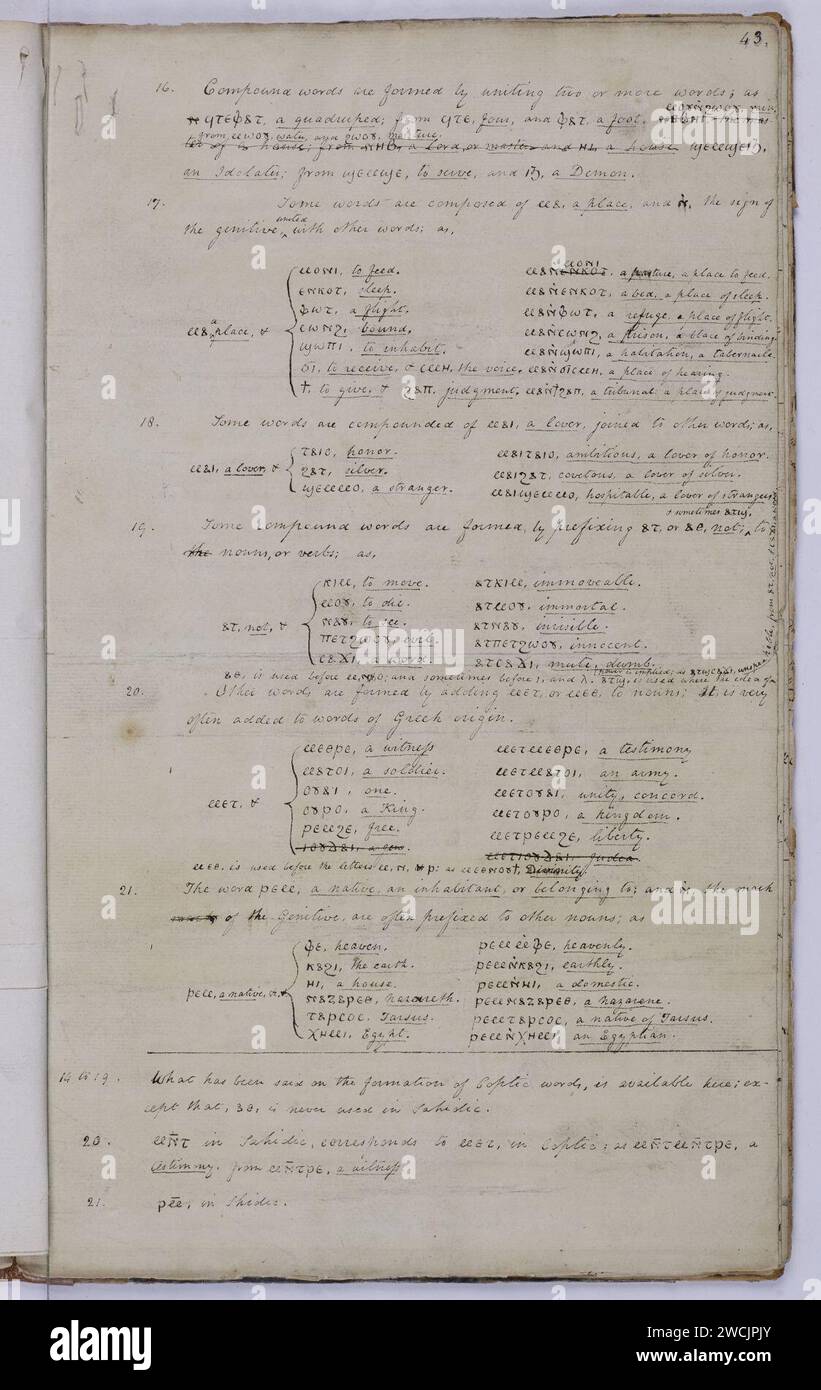 43.
16. Compound words are formed by uniting two or more words; as
ϥⲧⲉⲫⲁⲧ, a quadruped; from ϥⲧⲉ, four, and ⲫⲁⲧ, a foot.
from ⲙⲱⲟⲩ, water, and ϩⲱⲟⲩ, moisture.
a Lord, or master and ⲏⲓ, a house ϣⲉⲙϣⲉⲓϧ,
an Idolater; from ϣⲉⲙϣⲉ, to serve, and ⲓϧ, a Demon.
17. Some words are composed of ⲙⲁ, a place, and ⲛ̀, the sign of
the genitive, united with other words; as,
ⲙⲟⲛⲓ, to feed. ⲙⲁⲛ̀ⲉⲛⲕⲟⲧ ⲙⲟⲛⲓ, a pasture, a place to feed.
ⲉⲛⲕⲟⲧ, sleep. ⲙⲁⲛ̀ⲉⲛⲕⲟⲧ, a bed, a place of sleep.
ⲫⲱⲧ, a flight. ⲙⲁⲛ̀ⲫⲱⲧ, a refuge, a place of flight.
ⲙⲁ, a place, & ⲥⲱⲛϩ, bound. ⲙⲁⲛ̀ⲥⲱⲛϩ, a prison, a place of binding.
ϣⲱⲡⲓ, to inhabit. ⲙⲁⲛ̀ϣⲱⲡⲓ, a habitation, a tabernacle.
ϭⲓ, to receive, & ⲥⲙⲏ, the voice. ⲙⲁⲛ̀ϭⲓⲥⲙⲏ, a place of hearing.
ϯ, to give, & ϩⲁⲡ, judgment. ⲙⲁⲛ̀ϯϩⲁⲡ, a tribunal. a place of judgment.
18. Some words are compounded of ⲙⲁⲓ, a lover, joined to other words; as,
ⲧⲁⲓⲟ, honor. ⲙⲁⲓⲧⲁⲓⲟ, ambitious, a lover of honor.
ⲙⲁⲓ, a lover, & ϩⲁⲧ, silver. ⲙⲁⲓϩⲁⲧ, covetous, a lover of silver.
ϣⲉⲙⲙⲟ, a stranger. ⲙⲁⲓϣⲉⲙⲙⲟ, hospitable, a lover of strangers
& sometimes ⲁⲧϣ,
19. Some compound words are formed, by prefixing ⲁⲧ, or ⲁⲑ, not; to
the nouns, or verbs; as,
ⲕⲓⲙ, to move. ⲁⲧⲕⲓⲙ, immoveable.
ⲙⲟⲩ, to die. ⲁⲧⲙⲟⲩ, immortal.
ⲁⲧ, not, & ⲛⲁⲩ, to see. ⲁⲧⲛⲁⲩ, invisible.
ⲡⲉⲧϩⲱⲟⲩ, evil. ⲁⲧⲡⲉⲧϩⲱⲟⲩ, innocent.
ⲥⲁϫⲓ, a word. ⲁⲧⲥⲁϫⲓ, mute, dumb.
ⲁⲑ, is used before ⲙ, ⲛ, ⲟ; and sometimes before ⲓ, and ⲗ. ⲁⲧϣ, is used where the idea of
power is implied; as ⲁⲧϣⲥⲁϫⲓ,
20. Other words are formed by adding ⲙⲉⲧ, or ⲙⲉⲑ, to nouns; It is very
often added to words of Greek origin.
ⲙⲉⲑⲣⲉ, a witness ⲙⲉⲧⲙⲉⲑⲣⲉ, a testimony
ⲙⲁⲧⲟⲓ, a soldier. ⲙⲉⲧⲙⲁⲧⲟⲓ, an army.
ⲟⲩⲁⲓ, one. ⲙⲉⲧⲟⲩⲁⲓ, unity, concord.
ⲙⲉⲧ, & ⲟⲩⲣⲟ, a King. ⲙⲉⲧⲟⲩⲣⲟ, a kingdom.
ⲣⲉⲙϩⲉ, free. ⲙⲉⲧⲣⲉⲙϩⲉ, liberty.
ⲓⲟⲩⲇⲁⲓ, a Jew. ⲙⲉⲧⲓⲟⲩⲇⲁⲓ, Judea.
ⲙⲉⲑ, is used before the letters ⲙ, ⲛ, & ⲣ: as ⲙⲉⲑⲛⲟⲩϯ, Divinity.
21. The word ⲣⲉⲙ, a native, an inhabitant, or belonging to; and ⲛ̀, the mark
of the Genitive, are often prefixed to other nouns; as
ⲫⲉ, heaven. ⲣⲉⲙⲙ̀ⲫⲉ, heavenly.
ⲕⲁϩⲓ, the earth. ⲣⲉⲙⲛ̀ⲕⲁϩⲓ, earthly.
ⲏⲓ, a house. ⲣⲉⲙⲛ̀ⲏⲓ, a domestic.
ⲣⲉⲙ, a native, & ⲛⲁⲍⲁⲣⲉⲑ, Nazareth. ⲣⲉⲙⲛⲁⲍⲁⲣⲉⲑ, a nazarene.
ⲧⲁⲣⲥⲟⲥ, Tarsus. ⲣⲉⲙⲧⲁⲣⲥⲟⲥ, a native of Tarsus.
ⲭⲏⲙⲓ, Egypt. ⲣⲉⲙⲛ̀ⲭⲏⲙⲓ, an Egyptian.
14 to 19. What has been said on the formation of Coptic words, is available here; ex-
cept that, ⲁⲑ, is never used in Sahidic.
20. ⲙⲛ̄ⲧ in Sahidic, corresponds to ⲙⲉⲧ, in Coptic; as ⲙⲛ̄ⲧⲙⲛ̄ⲧⲣⲉ, a
testimony. from ⲙⲛ̄ⲧⲣⲉ, a witness
21. ⲣⲙ̄, in Shidic.
alamy
Image ID: 2WCJPJY
www.alamy.com